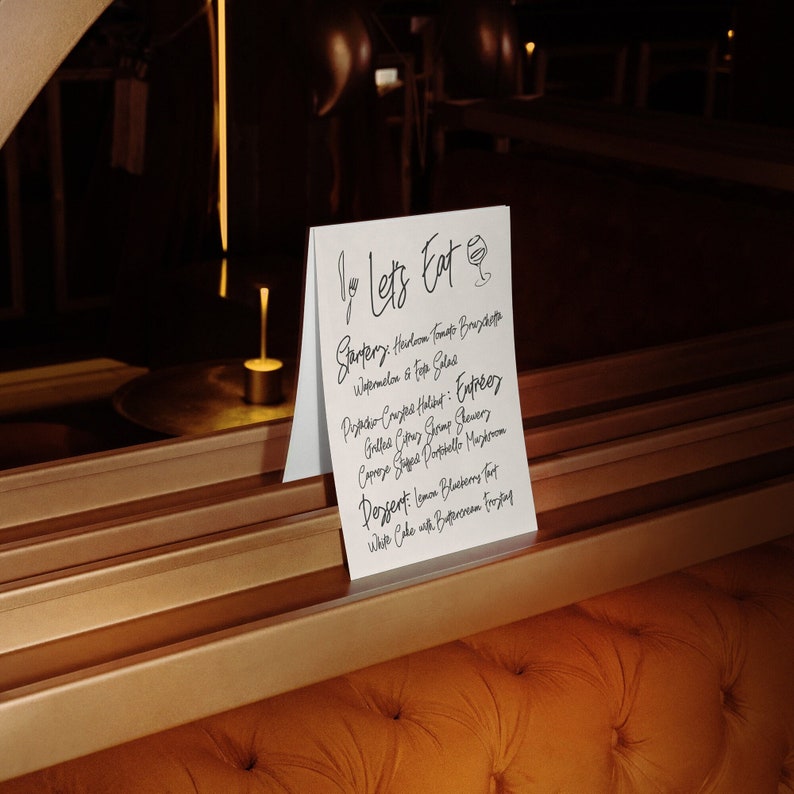 Let's Eat
Starters: Heirloom Tomato Bruschetta
Watermelon & Feta Salad
Pistachio-Crusted Halibut : Entrées
Grilled Citrus Shrimp Skewers
Caprese Stuffed Portobello Mushroom
Dessert: Lemon Blueberry Tart
White Cake with Buttercream Frosting